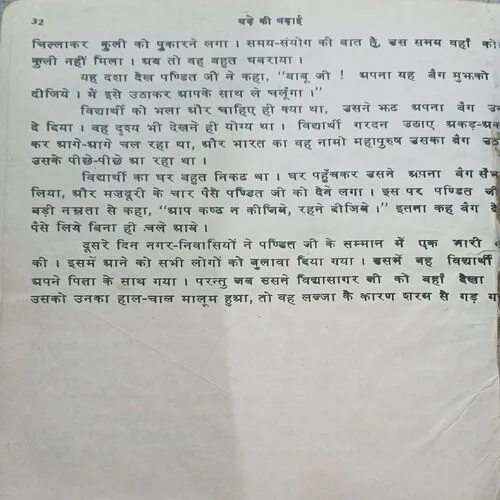 32 बड़े की बड़ाई
चिल्लाकर कुली को पुकारने लगा । समय-संयोग की बात है, उस समय वहाँ को
कुली नहीं मिला । अब तो वह बहुत घबराया ।
यह दशा देख पण्डित जी ने कहा, “बाबू जी ! अपना यह बैग मुझको
दीजिये । मैं इसे उठाकर आपके साथ ले चलूंगा ।”
विद्यार्थी को भला और चाहिए ही क्या था, उसने झट अपना बैग उन
दे दिया । वह दृश्य भी देखने ही योग्य था । विद्यार्थी गरदन उठाए अकड़-अक
कर आगे-आगे चल रहा था, और भारत का वह नामी महापुरुष उसका बैग उठ
उसके पीछे-पीछे आ रहा था ।
विद्यार्थी का घर बहुत निकट था । घर पहुँचकर उसने अपना बैग सँभ
लिया, और मजदूरी के चार पैसे पण्डित जी को देने लगा । इस पर पण्डित जी
बड़ी नम्रता से कहा, “आप कष्ट न कीजिबे, रहने दीजिबे ।” इतना कह वे
पैसे लिये बिना ही चले आये ।
दूसरे दिन नगर-निवासियों ने पण्डित जी के सम्मान में एक भारी
की । इसमें आने को सभी लोगों को बुलावा दिया गया । उसमें बह विद्यार्थी
अपने पिता के साथ गया । परन्तु जब उसने विद्यासागर जी को वहाँ देखा
उसको उनका हाल-चाल मालूम हुआ, तो वह लज्जा के कारण शरम से गड़ ग